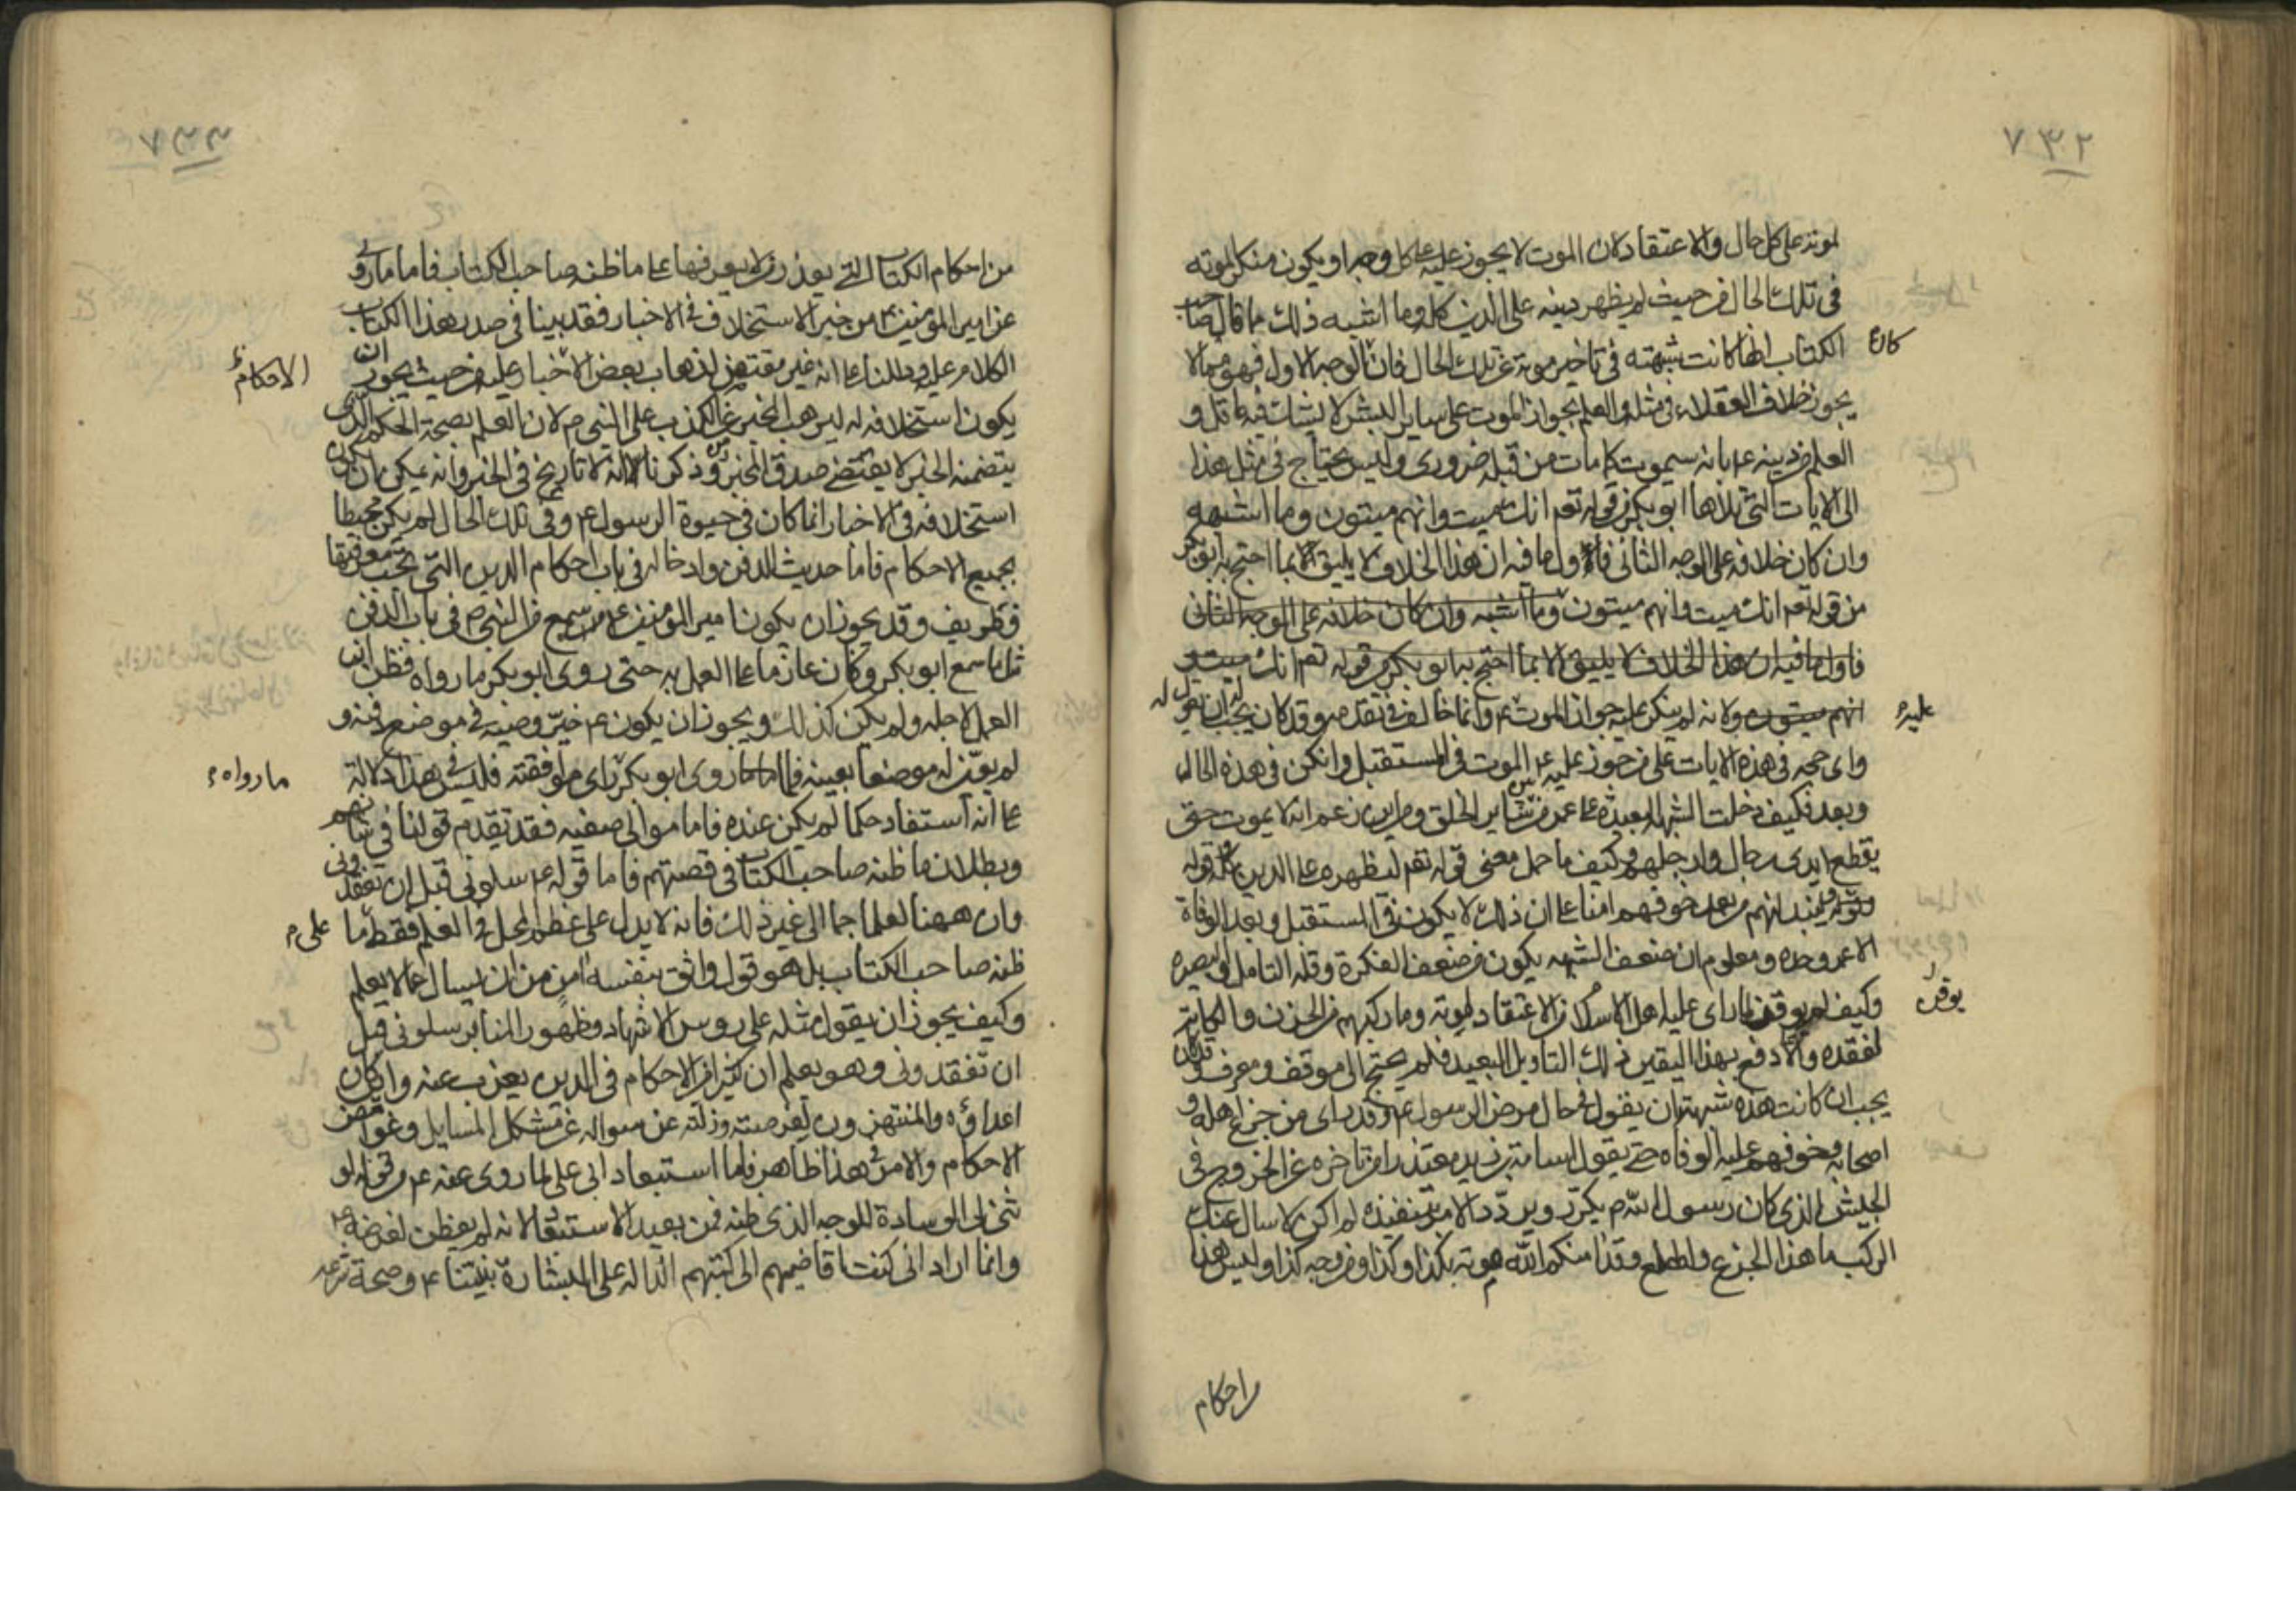 ٧٣٢
لموته على كل حال والاعتقاد لان الموت لا يجوز عليه على كل وجه او يكون منكرا لموته
فى تلك الحال من حيث لم يظهر دينه على الدين كله وما اشبه ذلك مما قال صاحب
الكتاب انها كانت شبهته فى تاخير موته عن تلك الحال فان كان الوجه الاول فهو مما لا
كان
يجوز خلاف العقلاء فى مثله والعلم بجواز الموت على ساير البشر لا يشك فيه عاقل و
العلم من دينه ع بانه سيموت كما مات من قبله ضرورى وليس يحتاج فى مثل هذا
الى الايات التى تلاها ابو بكر من قوله تعم انك ميت وانهم ميتون وما اشبهه
وان كان خلافه على الوجه الثانى فاول ما فيه ان هذا الخلاف لا يليق الا بما احتج به ابو بكر
من قوله تعم انك ميت وانهم ميتون وما اشبه وان كان خلافه على الوجه الثانى
فاول ما فيه ان هذا الخلاف لا يليق الا بما احتج به ابو بكر من قوله تعم انك ميت و
انهم ميتون ولانه لم ينكر عليه جواز الموت ع وانما خالف فى تقدمه وقد كان يجب ان يقول له
عليه
واى حجه فى هذه الايات على من جوز عليه ع الموت فى المستقبل وانكره فى هذه الحال
وبعد فكيف دخلت الشبهة البعيدة على عمر من بين ساير الخلق ومن اين زعم انه لا يموت حتى
يقطع ايدى رجال وارجلهم وكيف ما حمل معنى قوله تعم ليظهره على الدين كله وقوله
وليبدلنهم من بعد خوفهم امنا على ان ذلك لا يكون فى المستقبل وبعد الوفاة
الا عمر وحده ومعلوم ان ضعف الشبهه يكون من ضعف الفكرة وقلة التامل والبصيره
وكيف لم يوقن لما راى عليه اهل الاسلام من الاعتقاد لموته وما ركبهم من الحزن والكابة
يوقن
لفقده والا دفع بهذا اليقين ذلك التاويل البعيد فلم يحتج الى موقف ومعرف وقد كان
يجب ان كانت هذه شبهته ان يقول فى حال مرض الرسول ع وقد راى من جزع اهله و
اصحابه وخوفهم عليه الوفاه حتى يقول اسامة بن زيد معتذرا من تاخره عن الخروج فى
الجيش الذى كان رسول الله م يكرر ويردد الامر بتنفيذه لم اكن لاسال عنك
الركب ما هذا الجزع والهلع وقد امنكم الله موته بكذا وكذا ومن وجه كذا وليس هذا
من احكام
من احكام الكتاب التى يعذر من لا يعرفها على ما ظنه صاحب الكتاب فاما ما روى
عن امير المؤمنين ع من خبر الاستحلاف فى الاخبار فقد بينا فى صدر هذا الكتاب
الكلام عليه ودللنا على انه غير مقتض لذهاب بعض الاخبار عليه من حيث يجوز ان
الاحكام
يكون استحلافه له ليرهب المخبر عن الكذب على النبى م لان العلم بصحة الحكم الذى
يتضمنه الخبر لا يقتضى صدق المخبر وذكرنا انه لا تاريخ فى الخبر وانه يمكن ان يكون
استحلافه فى الاخبار انما كان فى حيوة الرسول ع وفى تلك الحال لم يكن محيطا
بجميع الاحكام فاما حديث الدفن وادخاله فى باب احكام الدين التى تجب معرفتها
فطريف وقد يجوز ان يكون امير المؤمنين ع سمع من النبى ص فى باب الدفن
مثل ما سمع ابو بكر وكان عازما على العمل به حتى روى ابو بكر ما رواه فظن ان
العمل لاجله ولم يكن كذلك ويجوز ان يكون ع خير وصيه فى موضع دفنه و
لم يعين له موضعا بعينه فلما روى ابو بكر راى موافقته فليس فى هذا دلالة
ما رواه
على انه استفاد حكما لم يكن عنده فاما موالى صفيه فقد تقدم قولنا فى شانهم
وبطلان ما ظنه صاحب الكتاب فى قصتهم فاما قوله ع سلونى قبل ان تفقدونى
وان ههنا لعلما جما الى غير ذلك فانه لا يدل على عظم المحل فى العلم فقط على ما
على
ظنه صاحب الكتاب بل هو قول واثق بنفسه امن من ان يسال عما لا يعلم
وكيف يجوز ان يقول مثله على روس الاشهاد وظهور المنابر سلونى قبل
ان تفقدونى وهو يعلم ان كثيرا من الاحكام فى الدين يعزب عنه واين كان
اعداؤه والمنتهزون لفرصته وزلته عن سواله عن مشكل المسايل وغوامض
الاحكام والامر فى هذا ظاهر فاما استبعاد ابى على لما روى عنه ع من قوله لو
ثنى لى الوسادة للوجه الذى ظنه فمن بعيد الاستبعاد لانه لم يفطن لغرضه ع
وانما اراد انى كنت اقاضيهم الى كتبهم الدالة على البشارة بنبينا ع وصحة شرعه